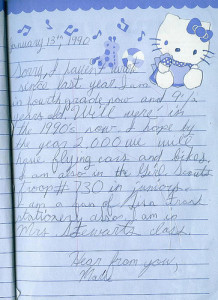 January 13th, 1990
Sorry, I haven't wrote
since last year. I am
in fourth grade now and 9 1/2
years old. Well were in
the 1990's now. I hope by
the year 2,000 we will
have flying cars and bikes.
I am also in the Girl Scouts
Troop# 730 in juniors.
I am a man of
stationery also. I am in
Mrs. Stewart's class.
Dear from you,